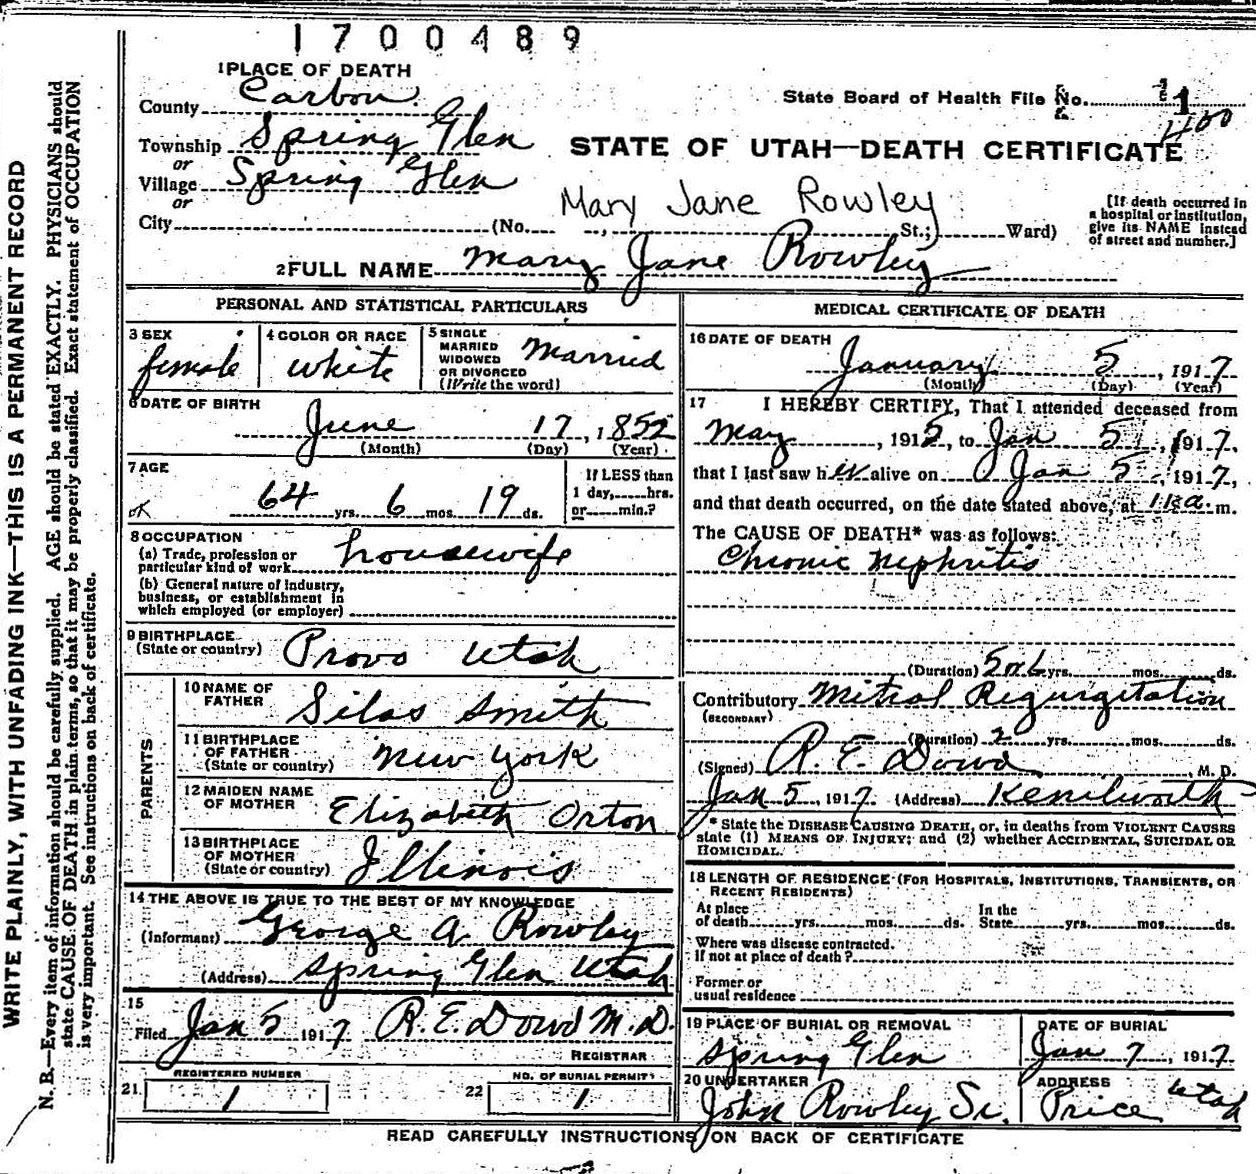 1700489
1 PLACE OF DEATH
County Carbon.
State Board of Health File No. 1
400
Township Spring Glen
or
STATE OF UTAH—DEATH CERTIFICATE
Village Spring Glen
or
Mary Jane Rowley
City (No. , St.; Ward)
[If death occurred in
a hospital or institution,
give its NAME instead
of street and number.]
2 FULL NAME Mary Jane Rowley
PERSONAL AND STATISTICAL PARTICULARS
3 SEX
female
4 COLOR OR RACE
white
5 SINGLE
MARRIED
WIDOWED
OR DIVORCED
(Write the word)
Married
6 DATE OF BIRTH
June 17, 1852
(Month) (Day) (Year)
7 AGE
OK
64 yrs. 6 mos. 19 ds.
If LESS than
1 day, hrs.
or min.?
8 OCCUPATION
(a) Trade, profession or
particular kind of work housewife
(b) General nature of industry,
business, or establishment in
which employed (or employer)
9 BIRTHPLACE
(State or country) Provo Utah
PARENTS
10 NAME OF
FATHER Silas Smith
11 BIRTHPLACE
OF FATHER
(State or country) New York
12 MAIDEN NAME
OF MOTHER Elizabeth Orton
13 BIRTHPLACE
OF MOTHER
(State or country) Illinois
14 THE ABOVE IS TRUE TO THE BEST OF MY KNOWLEDGE
(Informant) George A Rowley
(Address) Spring Glen Utah
15
Filed Jan 5 1917 R. E. Dowd M.D.
REGISTRAR
21 REGISTERED NUMBER
1
22 NO. OF BURIAL PERMIT
1
MEDICAL CERTIFICATE OF DEATH
16 DATE OF DEATH
January 5, 1917
(Month) (Day) (Year)
17 I HEREBY CERTIFY, That I attended deceased from
May , 1915, to Jan 5, 1917,
that I last saw her alive on Jan 5 1917,
and that death occurred, on the date stated above, at m.
The CAUSE OF DEATH* was as follows:
Chronic Nephritis
(Duration) 5 or 6 yrs. mos. ds.
Contributory Mitral Regurgitation
(SECONDARY)
(Duration) 2 yrs. mos. ds.
(Signed) R. E. Dowd M. D.
Jan 5, 1917 (Address) Kenilworth
* State the DISEASE CAUSING DEATH, or, in deaths from VIOLENT CAUSES
state (1) MEANS OF INJURY; and (2) whether ACCIDENTAL, SUICIDAL OR
HOMICIDAL.
18 LENGTH OF RESIDENCE (FOR HOSPITALS, INSTITUTIONS, TRANSIENTS, OR
RECENT RESIDENTS)
At place
of death yrs. mos. ds.
In the
State yrs. mos. ds.
Where was disease contracted.
If not at place of death?
Former or
usual residence
19 PLACE OF BURIAL OR REMOVAL
Spring Glen
DATE OF BURIAL
Jan 7, 1917
20 UNDERTAKER
John Rowley Sr.
ADDRESS
Price Utah
READ CAREFULLY INSTRUCTIONS ON BACK OF CERTIFICATE
WRITE PLAINLY, WITH UNFADING INK—THIS IS A PERMANENT RECORD
N. B.—Every item of information should be carefully supplied. AGE should be stated EXACTLY. PHYSICIANS should
state CAUSE OF DEATH in plain terms, so that it may be properly classified. Exact statement of OCCUPATION
is very important. See instructions on back of certificate.